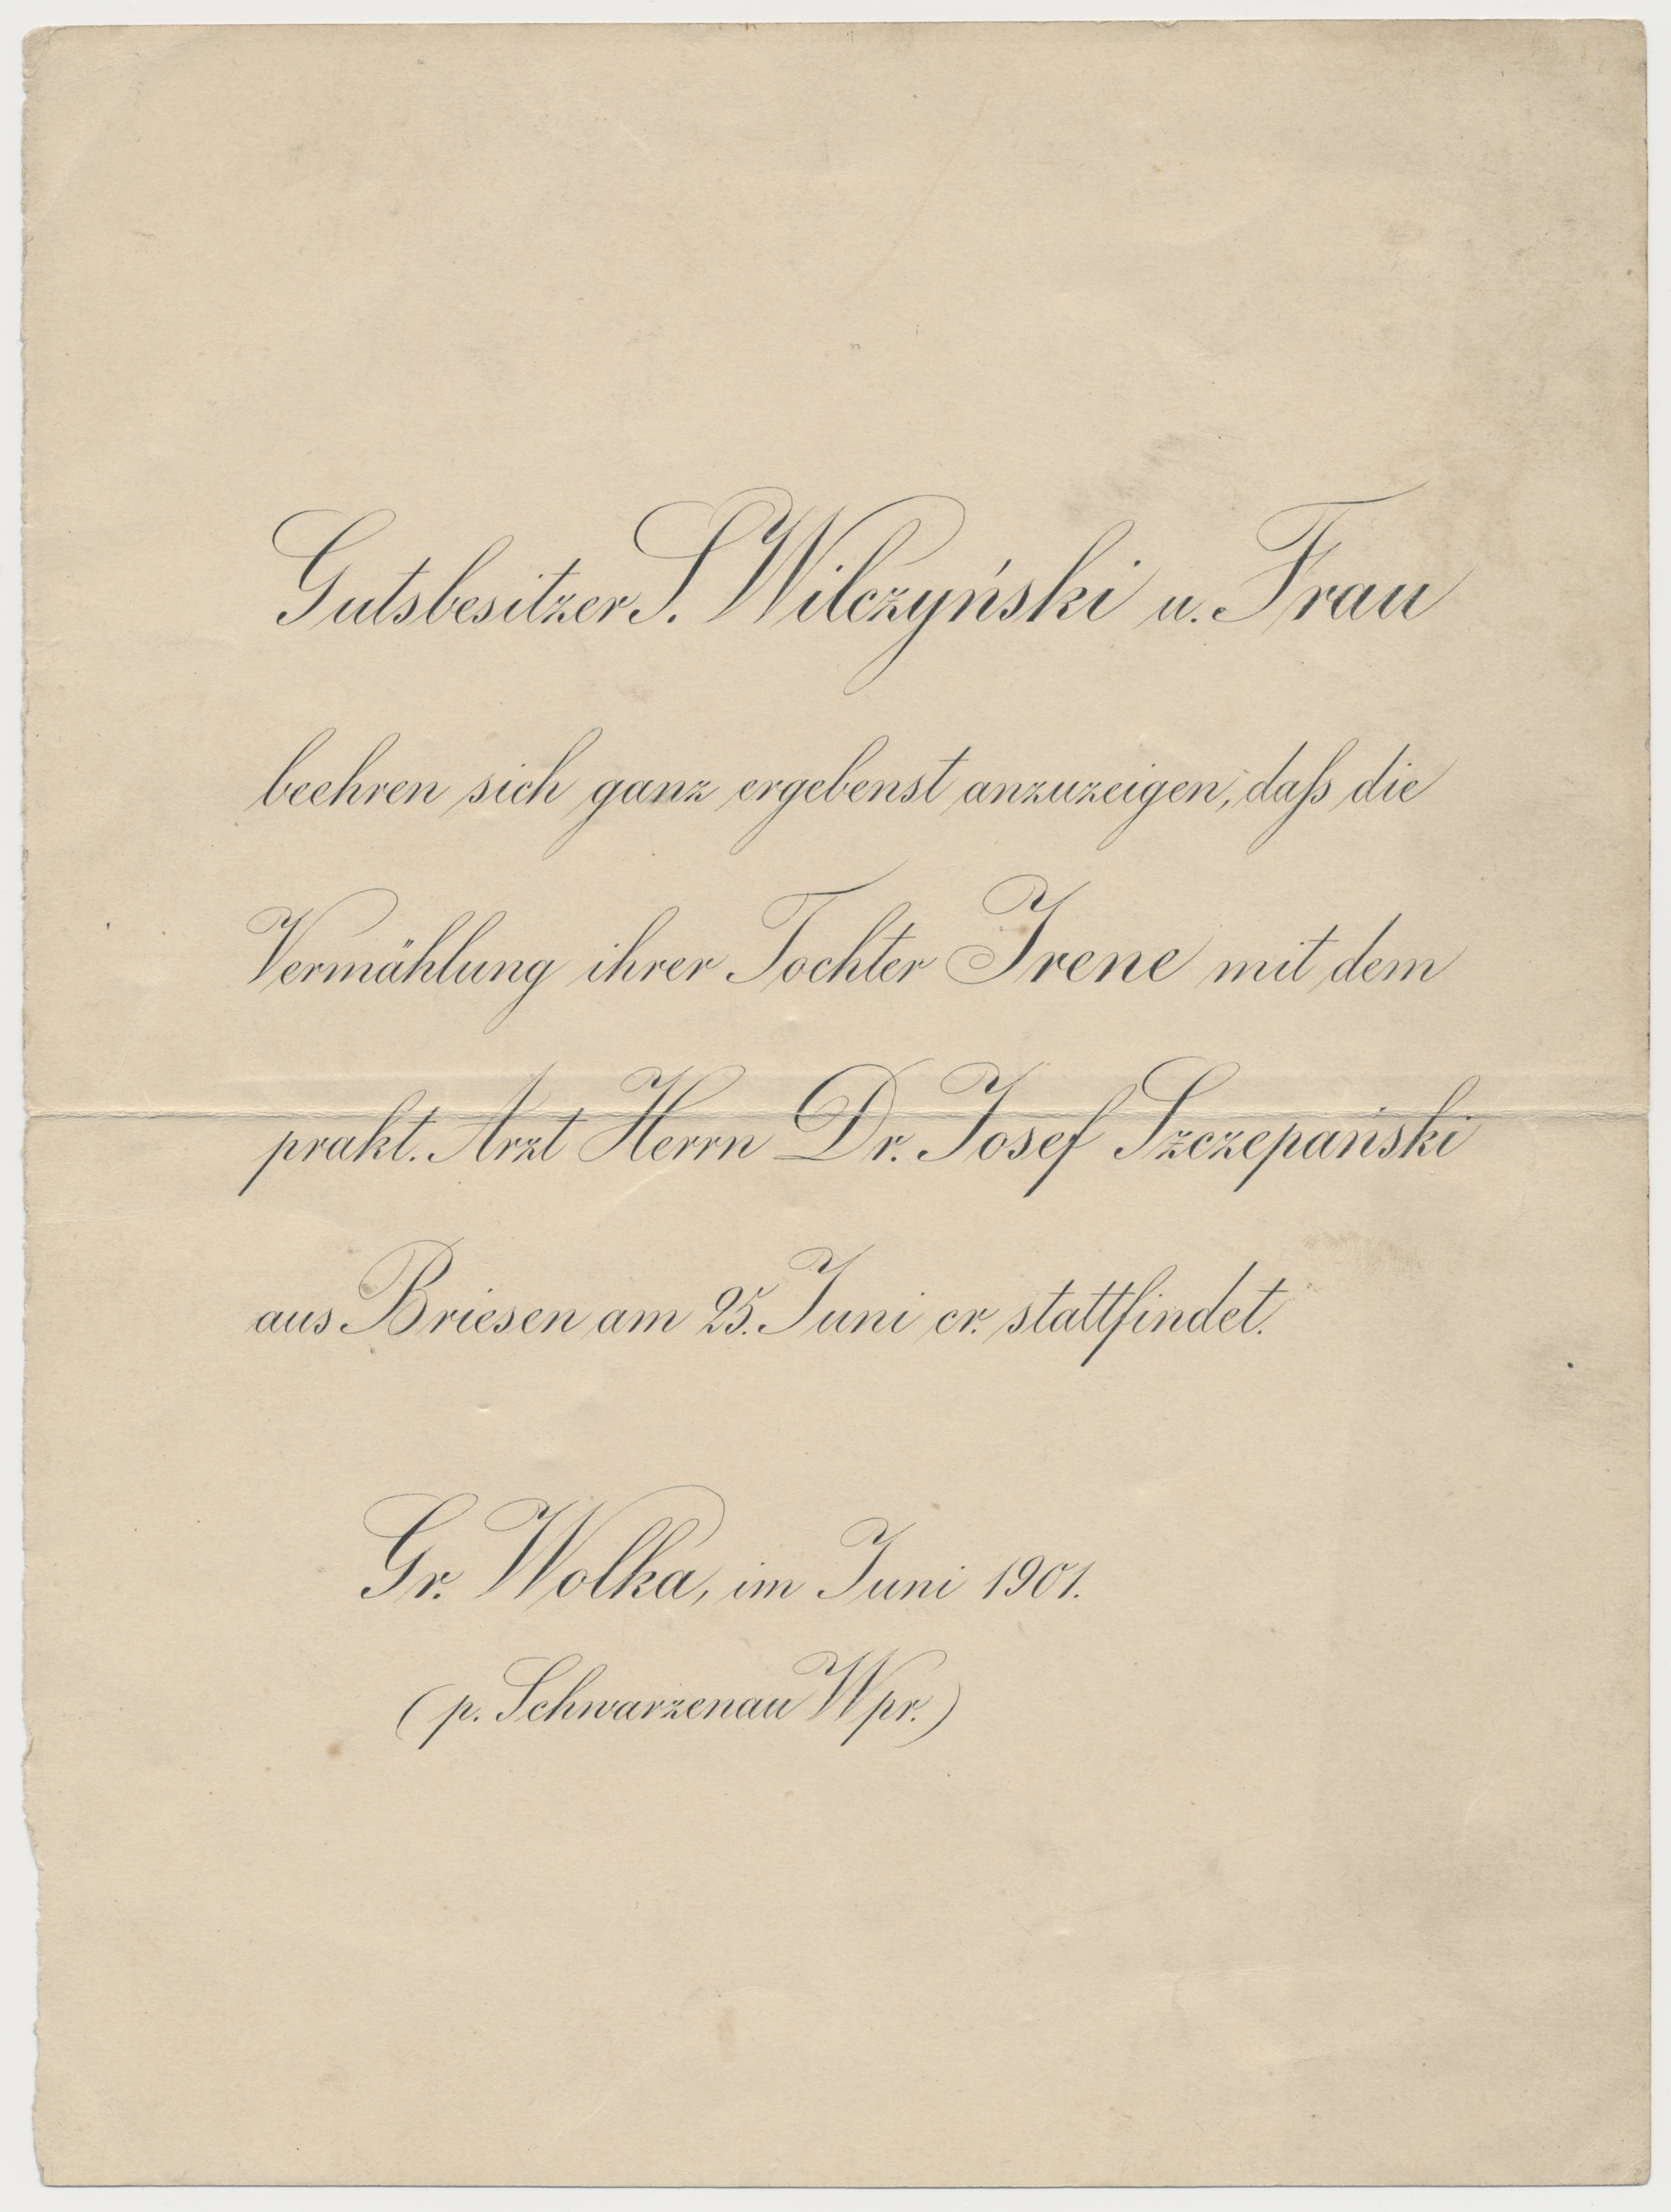 Gutsbesitzer S. Wilczyński u. Frau
beehren sich ganz ergebenst anzuzeigen, daſs die
Vermählung ihrer Tochter Irene mit dem
prakt. Arzt Herrn Dr. Josef Szczepański
aus Briesen am 25. Juni cr. stattfindet.
Gr. Wolka, im Juni 1901.
(p. Schwarzenau Wpr.)